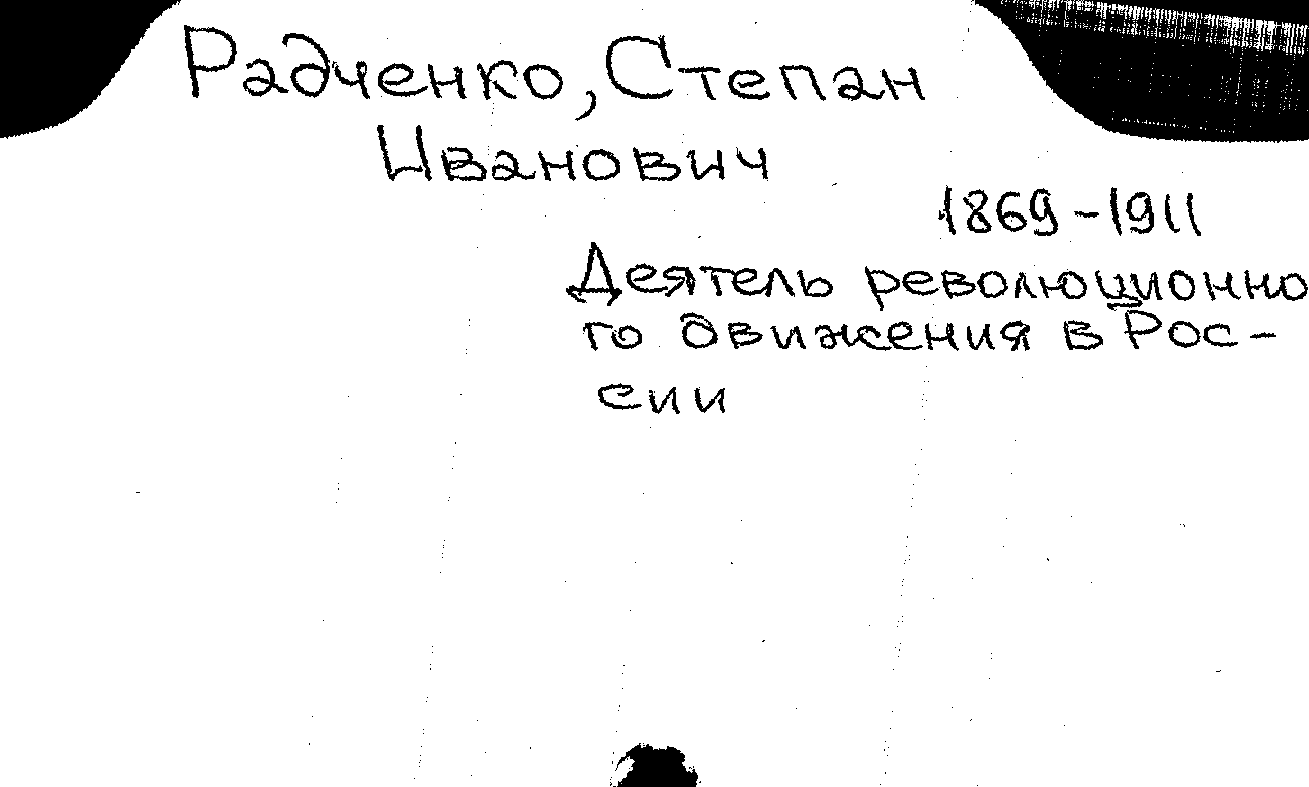 Радченко, Степан
Иванович
1869-1911
Деятель революционно
го движения в Рос-
сии